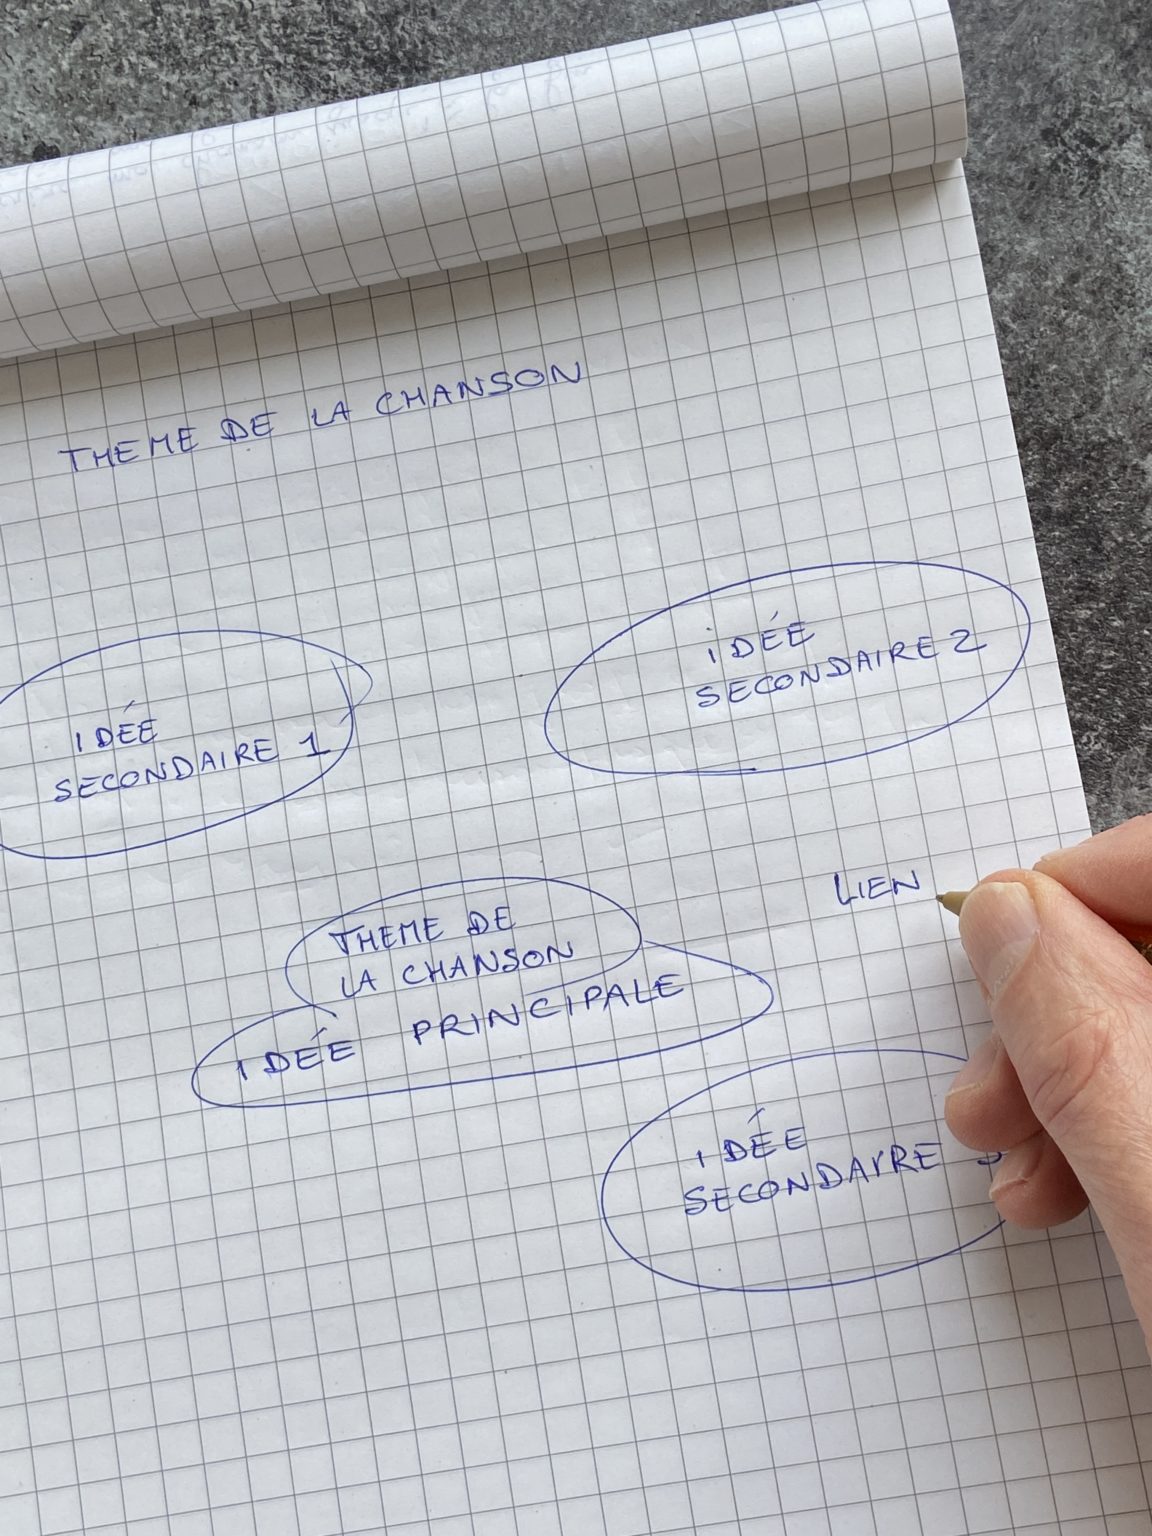 THEME DE LA CHANSON
IDÉE
SECONDAIRE 1
iDÉE
SECONDAIRE 2
LIEN
THEME DE
LA CHANSON
IDÉE PRINCIPALE
IDÉE
SECONDAIRE